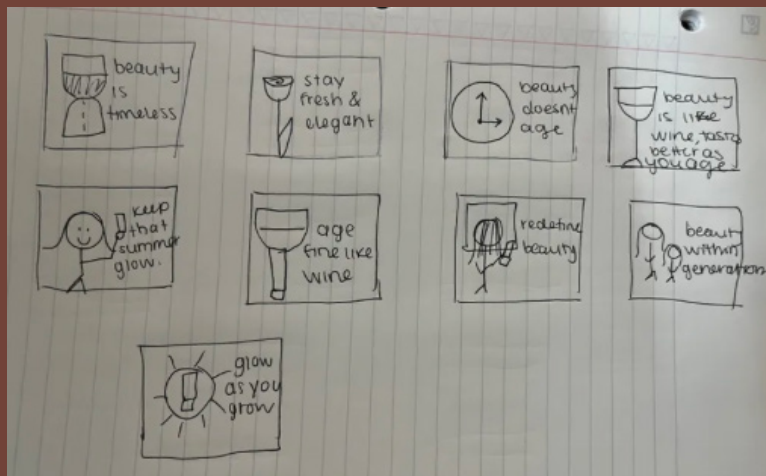 beauty
is
timeless
stay
fresh &
elegant
beauty
doesnt
age
beauty
is like
wine, tasts
better as
you age
keep
that
summer
glow.
age
fine like
wine
redefine
beauty
beauty
within
generation
glow
as you
grow